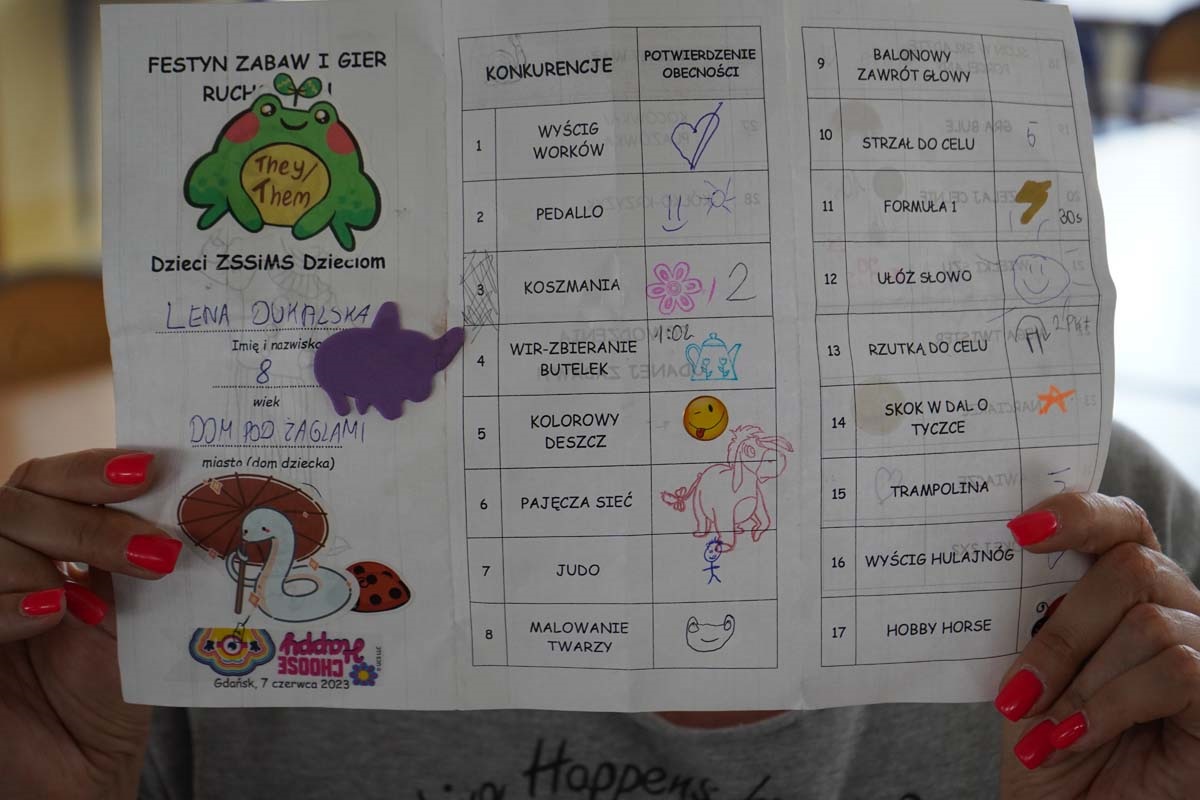 FESTYN ZABAW I GIER
They/
Them
Dzieci ZSSiMS Dzieciom
LENA DUKALSKA
Imię i nazwisko
8
wiek
DOM POD ŻAGLAMI
miasto (dom dziecka)
CHOOSE
Happy
Gdańsk, 7 czerwca 2023
KONKURENCJE
POTWIERDZENIE
OBECNOŚCI
1
WYŚCIG
WORKÓW
2
PEDALLO
3
KOSZMANIA
2
4
WIR-ZBIERANIE
BUTELEK
1:02
5
KOLOROWY
DESZCZ
6
PAJĘCZA SIEĆ
7
JUDO
8
MALOWANIE
TWARZY
9
BALONOWY
ZAWRÓT GŁOWY
10
STRZAŁ DO CELU
5
11
FORMUŁA 1
30s
12
UŁÓŻ SŁOWO
13
RZUTKĄ DO CELU
2 Pkt
14
SKOK W DAL O
TYCZCE
15
TRAMPOLINA
16
WYŚCIG HULAJNÓG
17
HOBBY HORSE
Happens